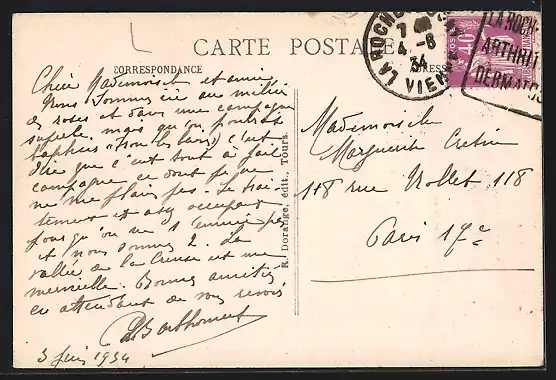 CARTE POSTALE
CORRESPONDANCE
LA ROCHE
7
4-6
34
VIENNE
40
LA ROCHE
ARTHRIT
DERMATOS
Chère Mademoiselle et amie
Nous sommes ici au milieu
des roses et dans une campagne
superbe. mais qu'on pourrait
c'est
dire que c'est tout à fait
campagne ce dont je
ne me plains pas. Le trai-
tement est assez occupant
pour qu'on ne s'ennuie pas
et nous sommes 2. La
vallée de la Creuse est une
merveille. Bonnes amitiés
en attendant de vous revoir
3 Juin 1934
R. Dorange, édit., Tours.
Mademoiselle
Marguerite Cretin
118 rue Nollet 118
Paris 17e